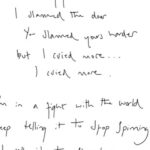 I slammed the door
You slammed yours harder
but I cried more...
I cried more.
in a fight with the world
telling it to stop spinning